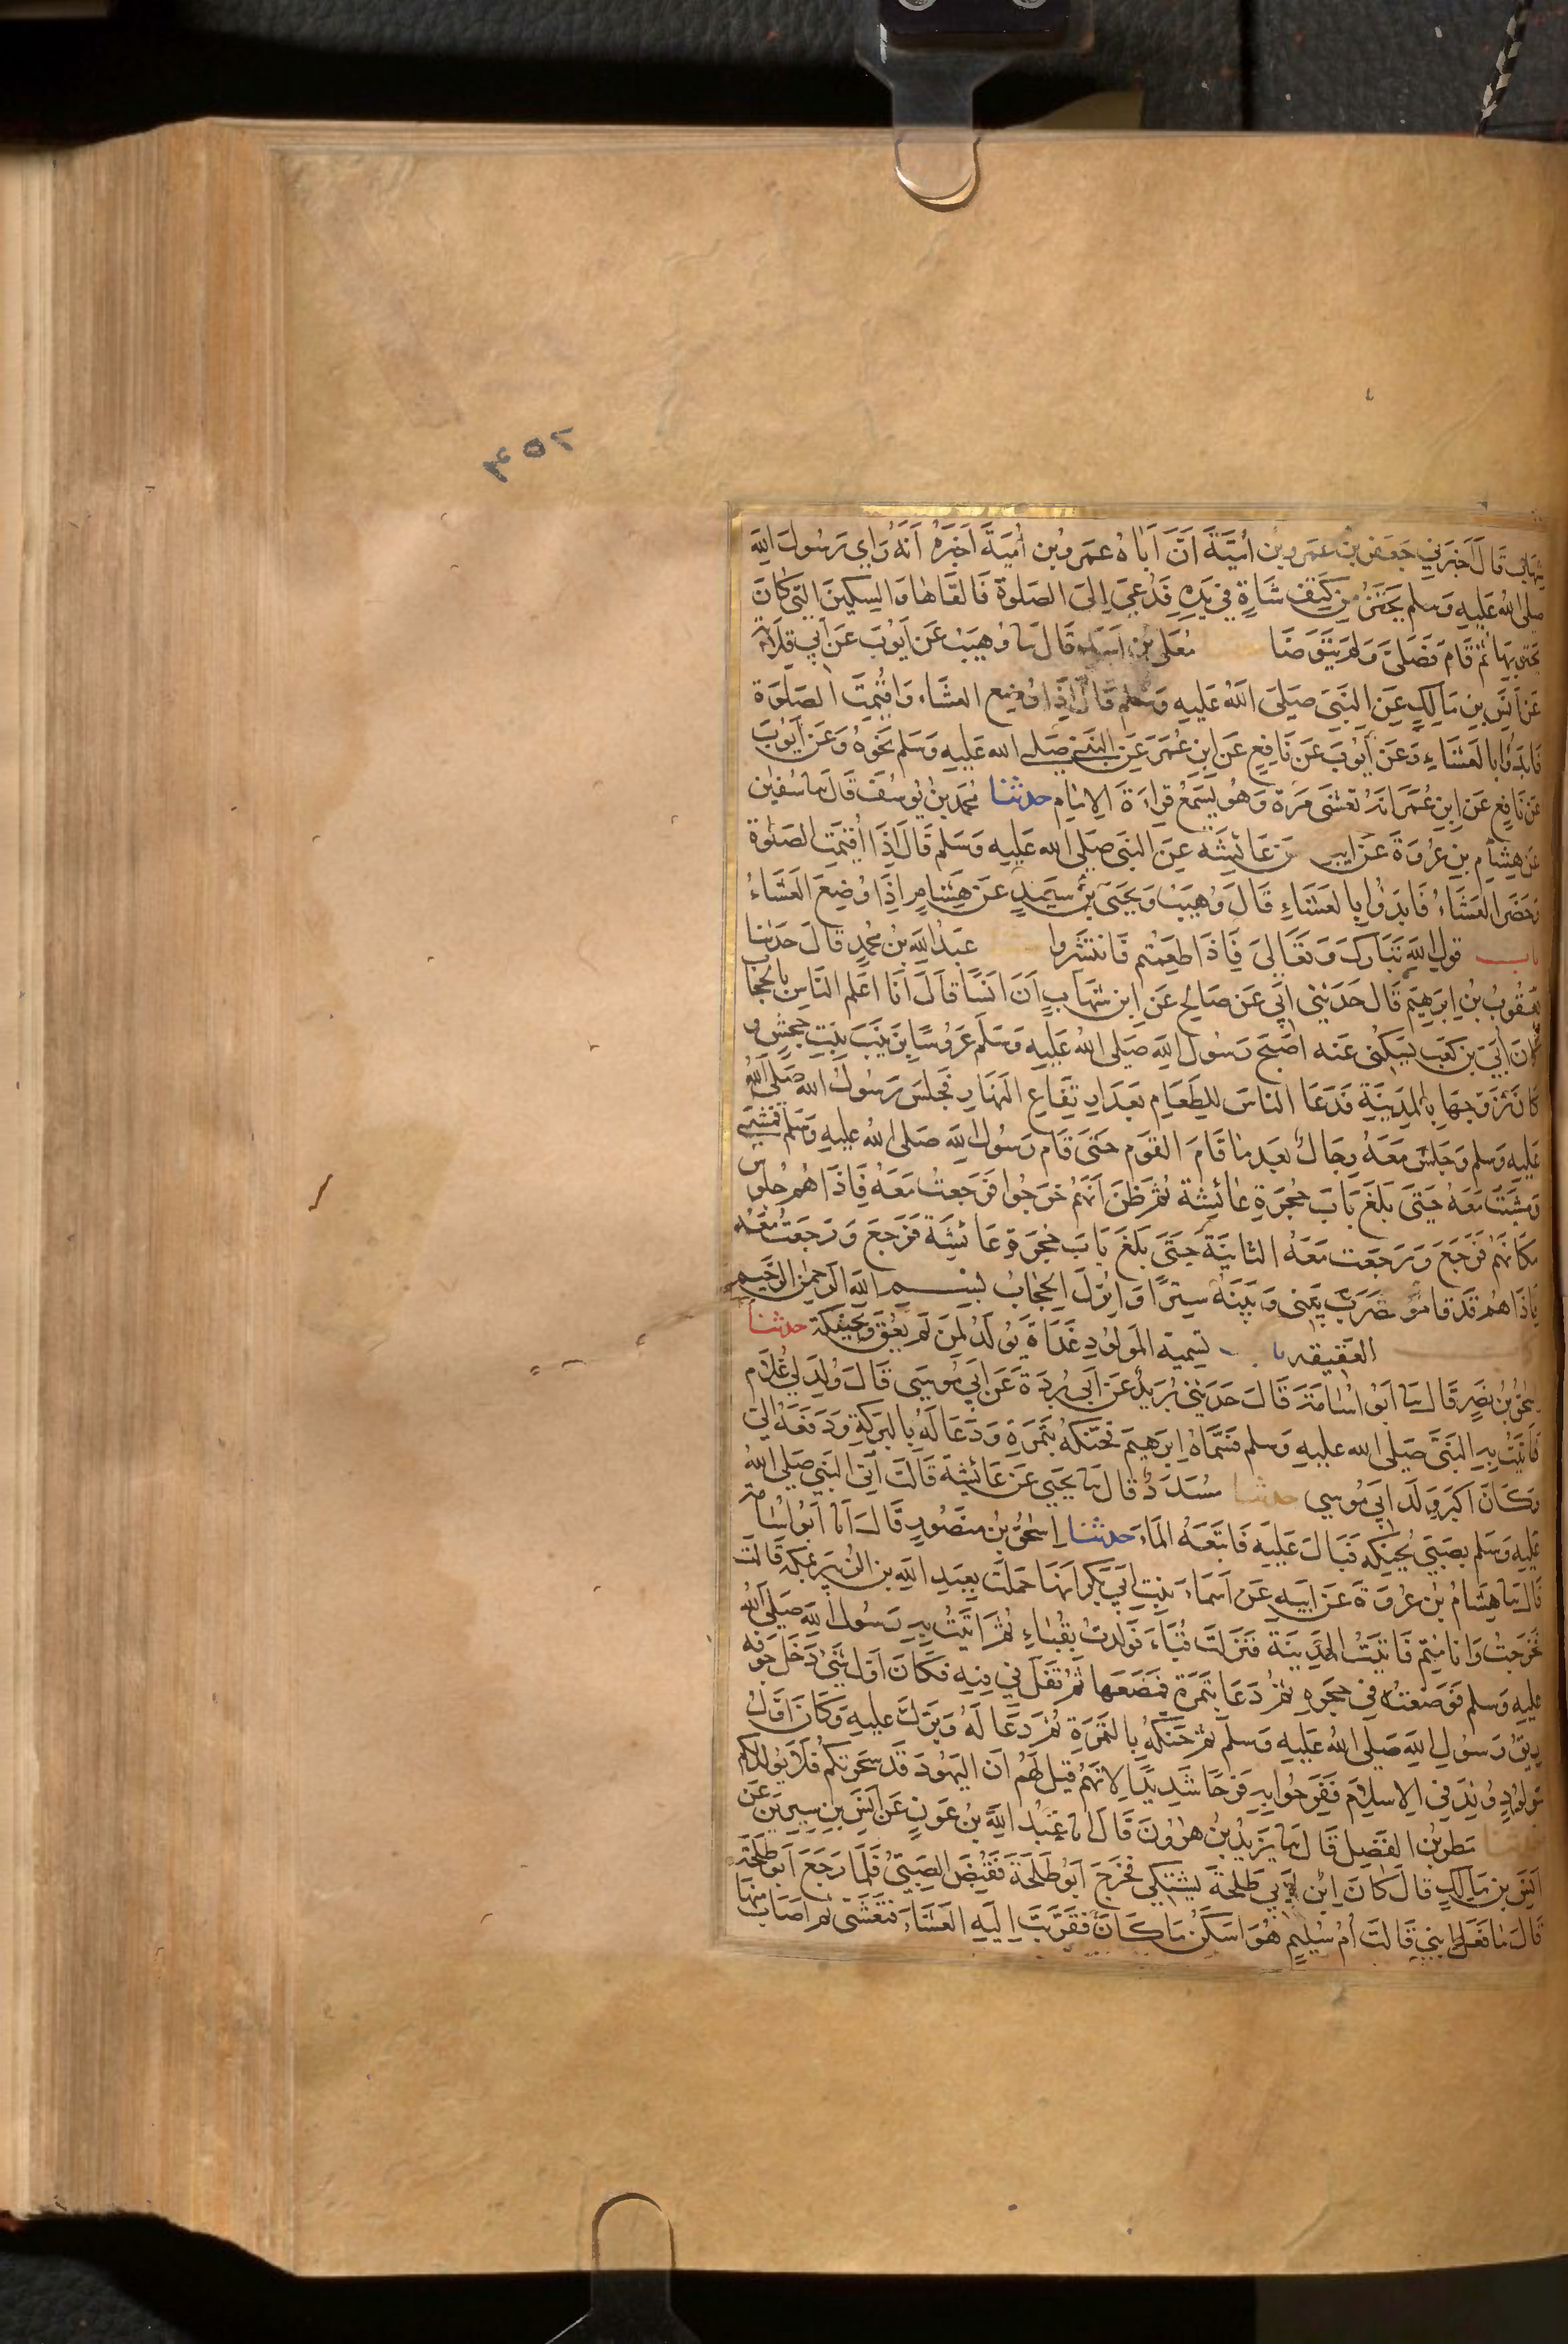 ٦٥٧
شهاب قال اخبرني جعفر بن عمرو بن اُمَيَّةَ اَنَّ اَبَاهُ عمرو بن اُميَةَ اَخبَرَهُ اَنَّهُ رَاى رسُولَ الله
صلى الله عليه وسلم يحتزّ من كتِف شاةٍ في يَدِهِ فدُعيَ اِلى الصلوة فالقاها وَالسِكينَ التى كانَ
يحتز بها ثم قام فصَلىَّ ولم يتوضّا معلى بن اسد قال نا وُهَيب عن ايوب عن ابي قلابة
عن انس بن مالك عن النبي صلى الله عليه وسلم قال اِذا وُضِع العشاء واقُيمت الصَلوة
فابدؤا بالعشاءِ وعن ايوب عن نافع عن ابن عُمَرَ عن النبي صلى الله عليه وسلم نحوهُ وَعن ايوب
عن نافع عن ابن عُمَرَ انه تعشى مرة وهو يسمعُ قراءةَ الامام حدثنا محمد بن يوسف قال نا سفين
عن هشام بن عروة عن ابيه عن عائشة عن النبي صلى الله عليه وسلم قال اِذا اُقيمت الصلوة
وحضر العشاءُ فابدؤا بالعشاءِ قال وهيب ويحيى بن سعيد عن هشام اِذا وُضِعَ العَشاءُ
باب قول الله تبارك وتعالى فاذا طعمتم فانتشروا عبد الله بن محمد قال حدثنا
يعقوب بن ابرهيم قال حدثني ابي عن صالح عن ابن شهاب ان انسًا قال انا اعلم الناس بالحجاب
كان ابي بن كعب يسئلني عنه اصبح رسول الله صلى الله عليه وسلم عروسًا بزينب بنت جحش و
كان تزوجها بالمدينة فدعا الناس للطعام بعد ارتفاع النهار فجلس رسول الله صلى الله
عليه وسلم وجلس معهُ رجال بعد ما قام القوم حتى قام رسول الله صلى الله عليه وسلم فمشى
ومشيت معه حتى بلغ باب حجرة عائشة ثم ظن انهم خرجوا فرجعت معه فاذا هم جلوس
مكانهم فرجع ورجعت معه الثانية حتى بلغ باب حجرة عائشة فرجع ورجعت معه
فاذا هم قد قاموا فضرب بيني وبينه سترًا واُنزل الحجاب بسم الله الرحمن الرحيم
كتاب العقيقه باب تسمية المولود غداة يولد لمن لم يعق وتحنيكه حدثنا
اسحق بن نصر قال نا ابو اسامة قال حدثني بُريد عن ابي بردة عن ابي موسى قال وُلد لي غلام
فاتيت به النبي صلى الله عليه وسلم فسمَّاهُ ابرهيم فحنكه بتمرة ودعا له بالبركة ودفعه الي
وكان اكبر ولد ابي موسي حدثنا مسدد قال نا يحيى عن عائشة قالت اُتي النبي صلى الله
عليه وسلم بصبي يحنكه فبال عليه فاتبعه الماء حدثنا اسحق بن منصور قال انا ابو اسامة
قال نا هشام بن عروة عن ابيه عن اسماء بنت ابي بكر انها حملت بعبد الله بن الزبير بمكه قالت
فخرجت وانا متم فاتيت المدينة فنزلت قباء فولدت بقباء ثم اتيت به رسول الله صلى الله
عليه وسلم فوضعته في حجره ثم دعا بتمرة فمضغها ثم تفل في فيه فكان اول شيء دخل جوفه
ريق رسول الله صلى الله عليه وسلم ثم حنكه بالتمرة ثم دعا له وبرك عليه وكان اول
مولود ولد في الاسلام ففرحوا به فرحًا شديدًا لانهم قيل لهم ان اليهود قد سحرتكم فلا يولد لكم
حدثنا مطر بن الفضل قال نا يزيد بن هرون قال انا عبد الله بن عون عن انس بن سيرين عن
انس بن مالك قال كان ابن لابي طلحة يشتكي فخرج ابو طلحة فقبض الصبي فلما رجع ابو طلحة
قال ما فعل ابني قالت ام سليم هو اسكن ما كان فقربت اليه العشاء فتعشى ثم اصاب منها